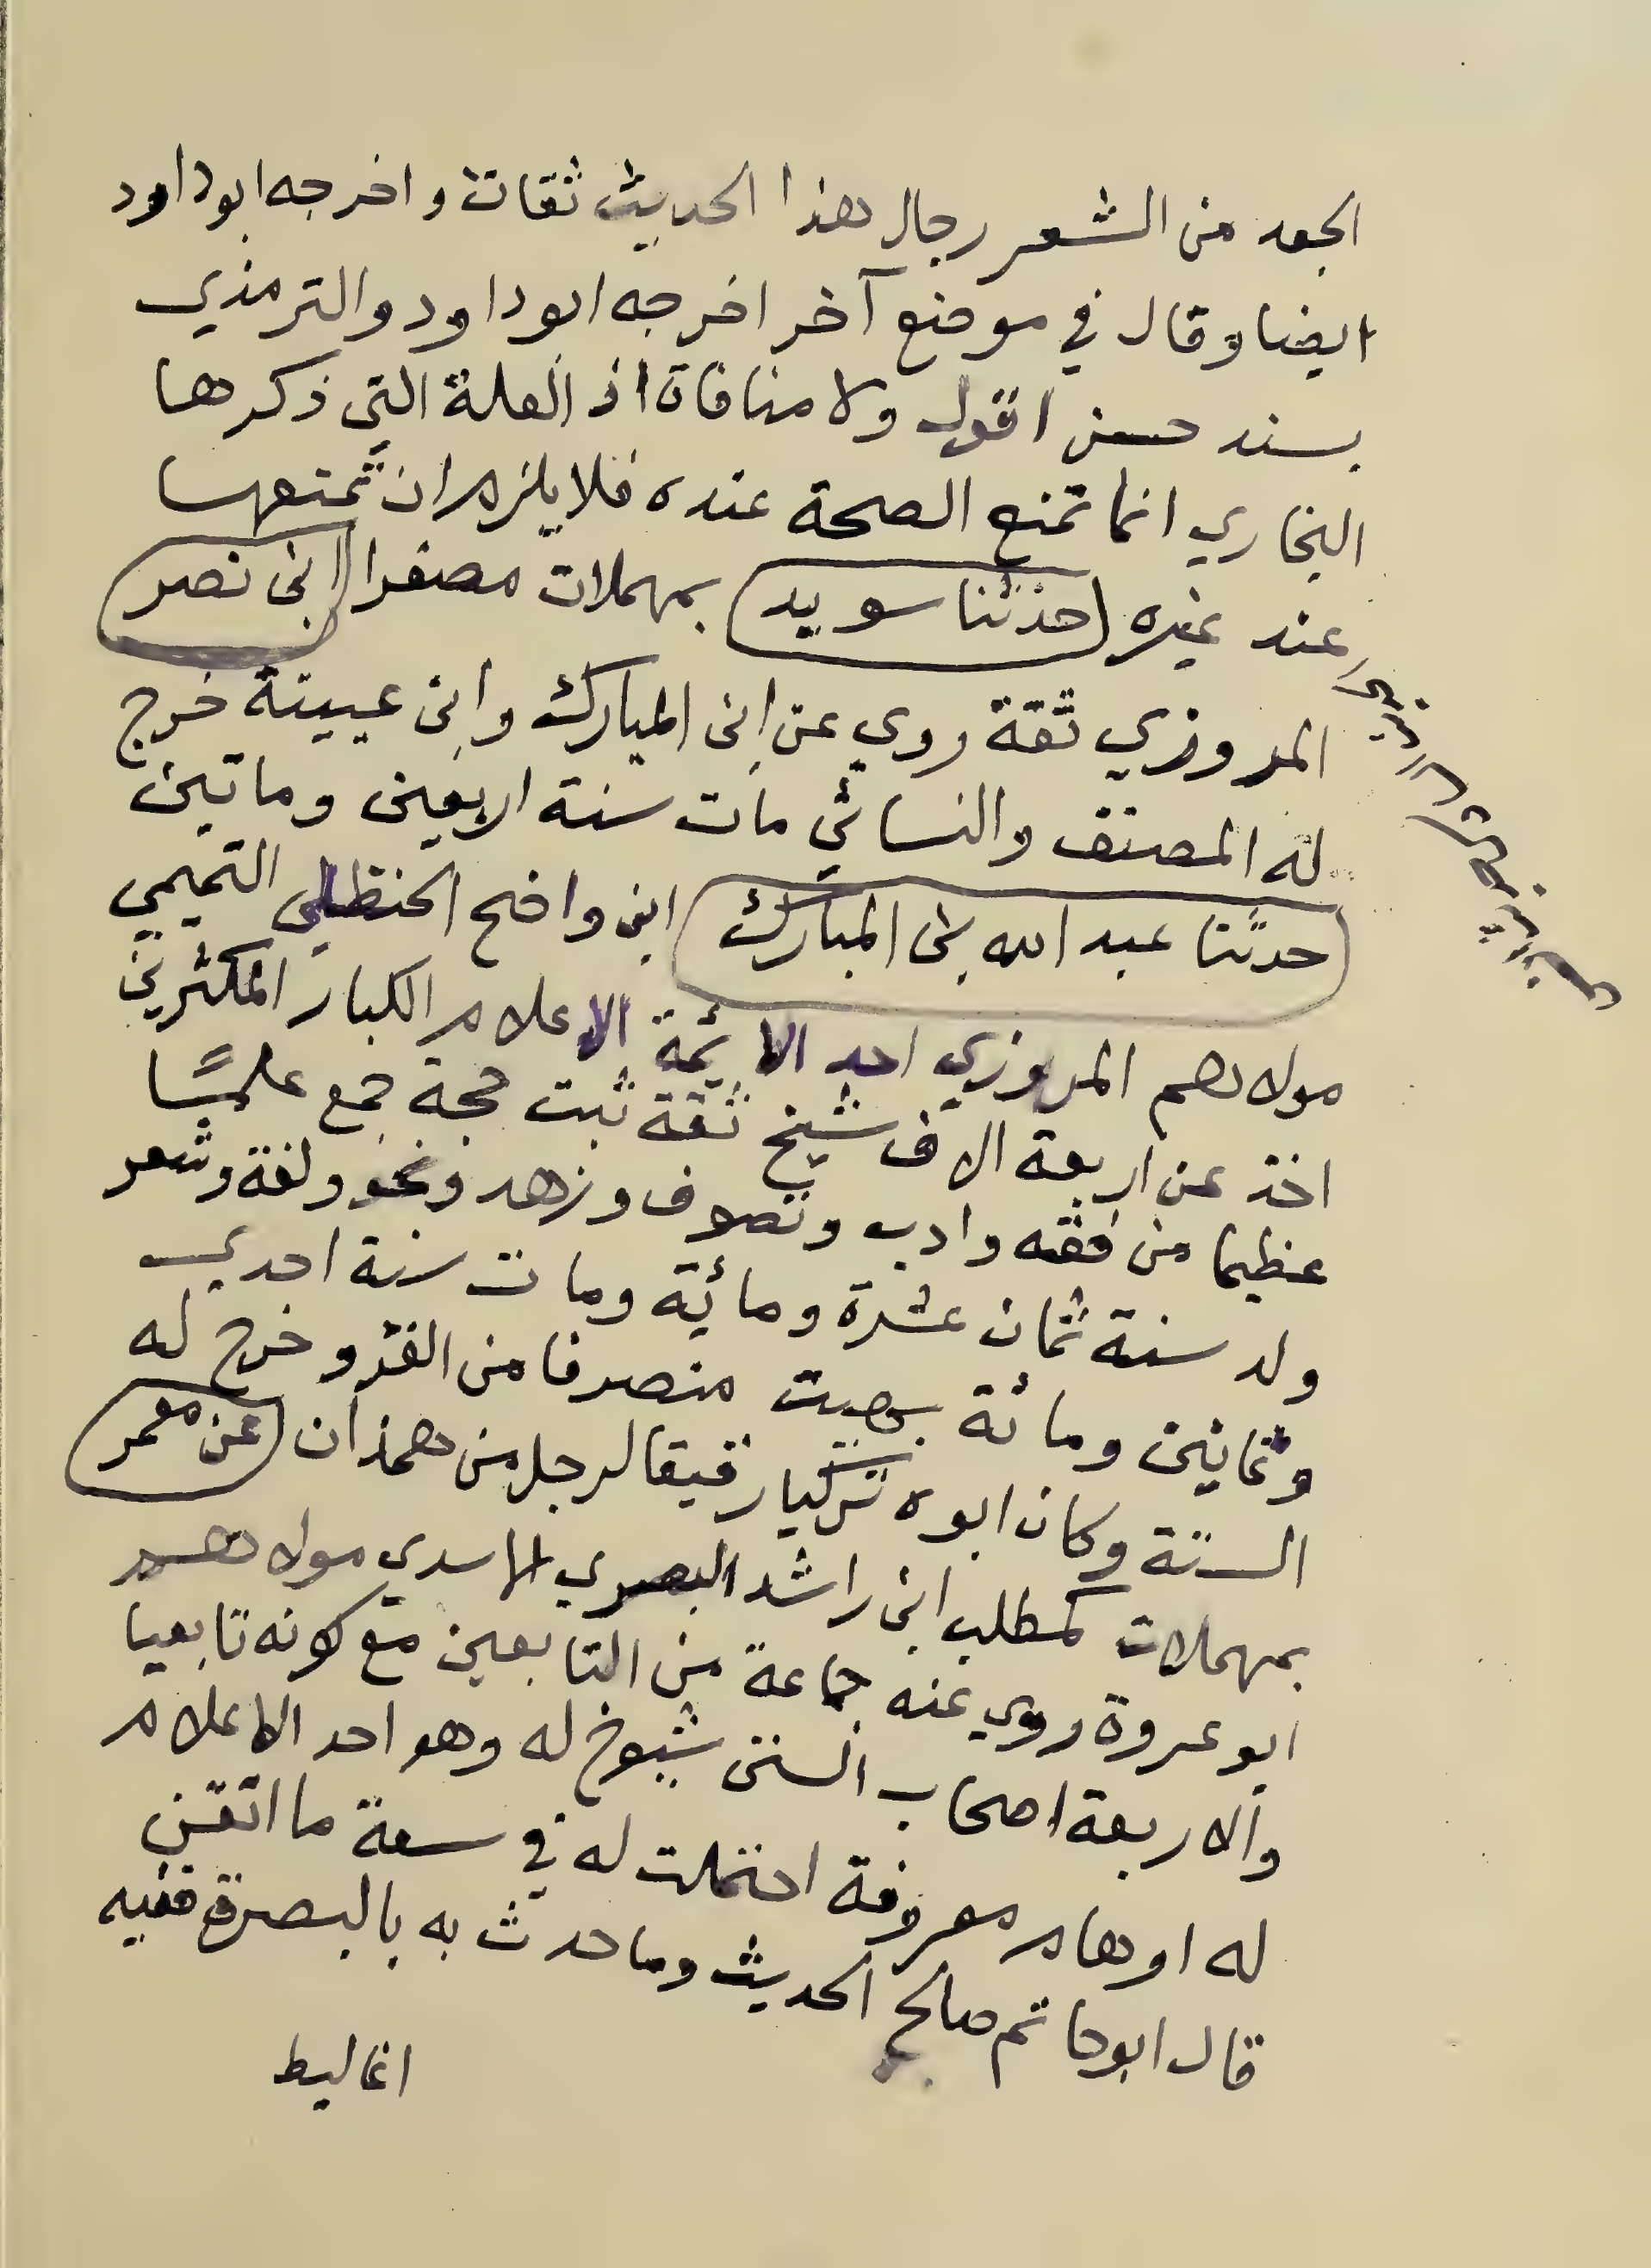 الجعد من الشعر رجال هذا الحديث ثقات واخرجه ابوداود
ايضا وقال في موضع آخر اخرجه ابوداود والترمذي
بسند حسن اقول ولا منافاة اذ العلة التي ذكرها
البخاري انما تمنع الصحة عنده فلا يلزم ان تمنعها
عند غيره حدثنا سويد بمهملات مصغرا ابن نصر
المروزي ثقة روي عن ابن المبارك وابن عيينة خرج
له المصنف والنسائي مات سنة اربعين وماتين
حدثنا عبد الله بن المبارك ابن واضح الحنظلي التميمي
مولاهم المروزي احد الائمة الاعلام الكبار المكثرين
اخذ عن اربعة الاف شيخ ثقة ثبت حجة جمع علمًا
عظيما من فقه وادب وتصوف وزهد ونحو ولغة وشعر
ولد سنة ثمان عشرة ومائة ومات سنة احدي
وثمانين ومائة بهيت منصرفا من الغزو خرج له
الستة وكان ابوه تركيا رقيقا لرجل من همذان عن معمر
بمهملات كمطلب ابن راشد البصري الاسدي مولاهم
ابو عروة روي عنه جماعة من التابعين مع كونه تابعيا
والاربعة اصحاب السنن شيوخ له وهو احد الاعلام
له اوهام معروفة احتملت له في سعة ما اتقن
قال ابوحاتم صالح الحديث وما حدث به بالبصرة ففيه
اغاليط